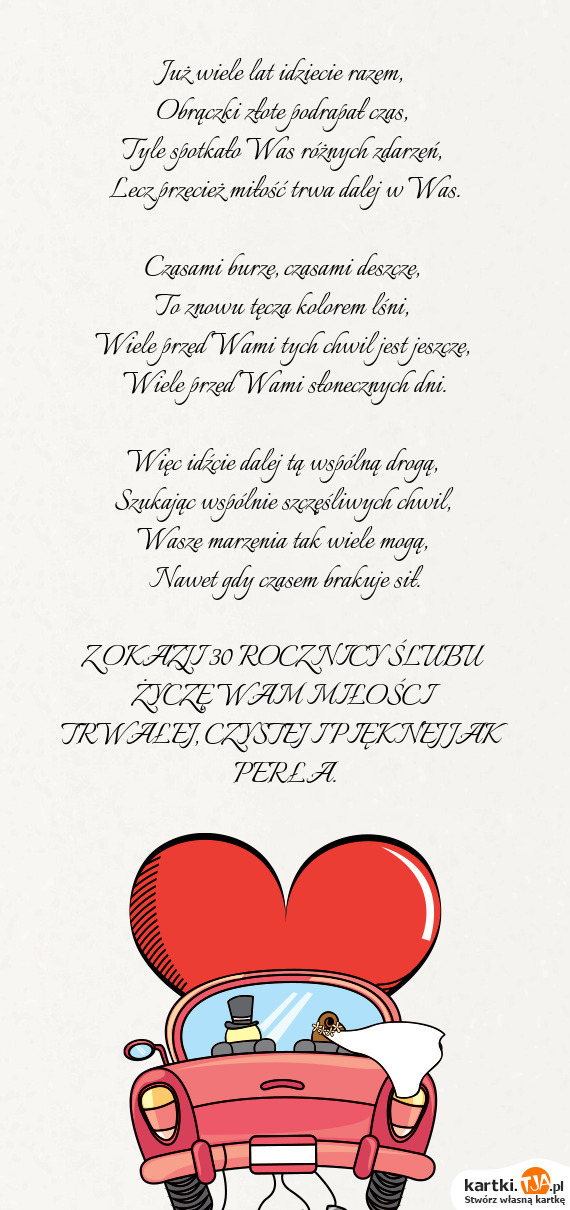 Już wiele lat idziecie razem,
Obrączki złote podrapał czas,
Tyle spotkało Was różnych zdarzeń,
Lecz przecież miłość trwa dalej w Was.
Czasami burze, czasami deszcze,
To znowu tęcza kolorem lśni,
Wiele przed Wami tych chwil jest jeszcze,
Wiele przed Wami słonecznych dni.
Więc idźcie dalej tą wspólną drogą,
Szukając wspólnie szczęśliwych chwil,
Wasze marzenia tak wiele mogą,
Nawet gdy czasem brakuje sił.
Z OKAZJI 30 ROCZNICY ŚLUBU
ŻYCZĘ WAM MIŁOŚCI
TRWAŁEJ, CZYSTEJ I PIĘKNEJ JAK
PERŁA.
kartki.TJA.pl
Stwórz własną kartkę